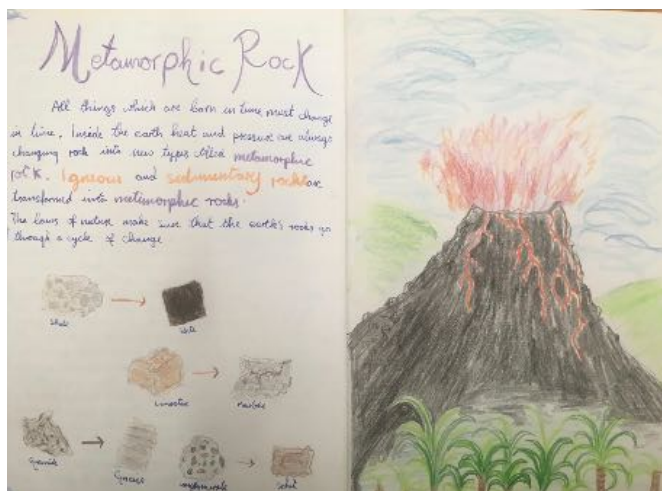 Metamorphic Rock
All things which are born in time must change
in time. Inside the earth heat and pressure are always
changing rock into new types called metamorphic
rock. Igneous and sedimentary rocks are
transformed into metamorphic rocks.
The laws of nature make sure that the earth's rocks go
through a cycle of change.
Shale
Slate
Limestone
Marble
Gneiss
Schist